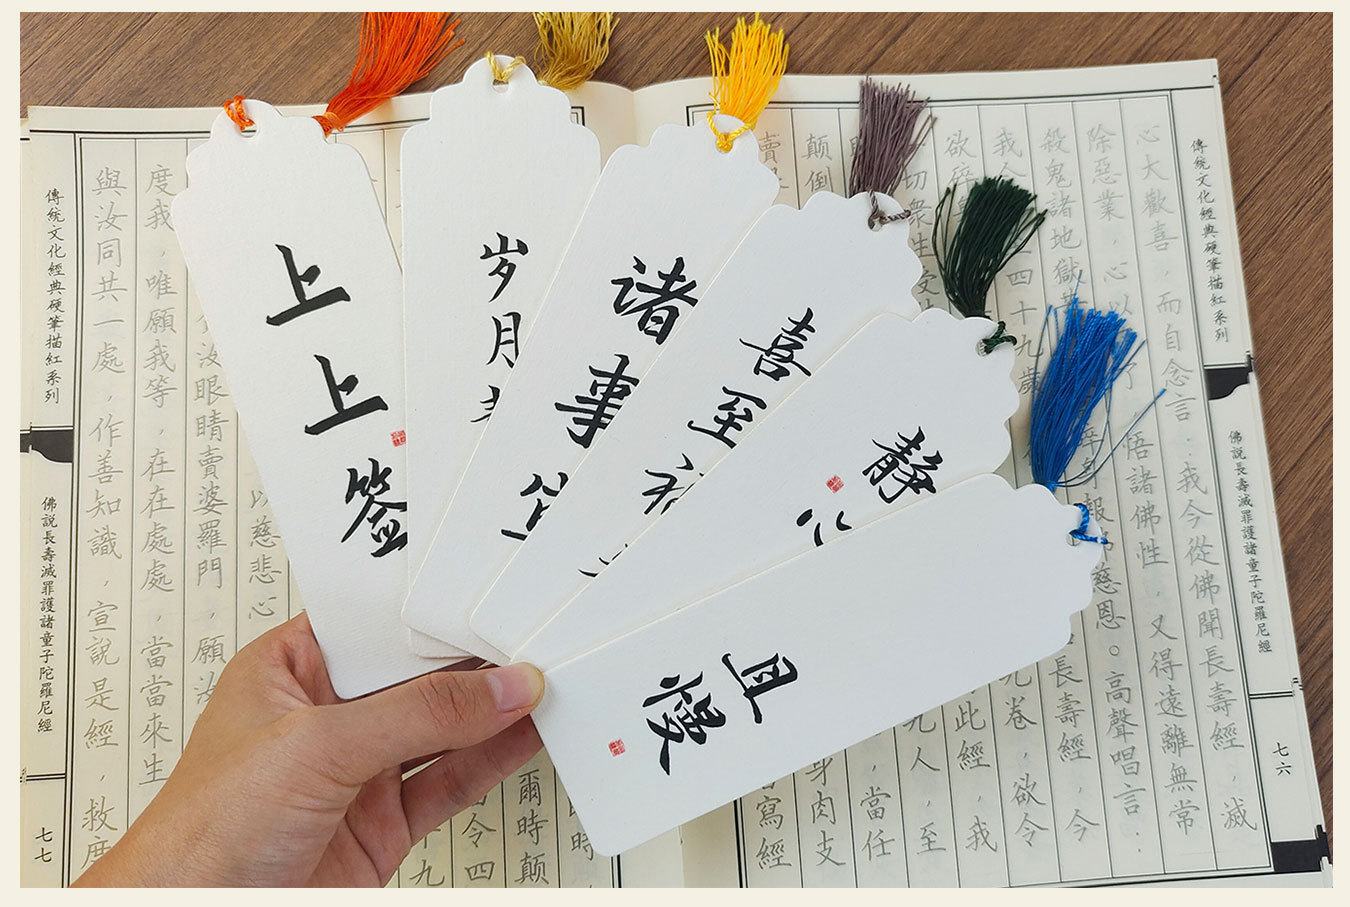 上上签
岁月
诸事
喜至
静心
且慢
傳統文化經典硬筆描紅系列
佛説長壽滅罪護諸童子陀羅尼經
七六
心大歡喜，而自念言：我今從佛聞長壽經，滅
除惡業，心以
悟諸佛性，又得遠離無常
殺鬼諸地獄
報佛慈恩。高聲唱言：
四十九歲
長壽經，今
九卷，欲令
此經，我
切衆生
九人，至
，當任
顛倒
身肉支
寫經
爾時顛
令四
以慈悲心
汝眼睛賣婆羅門，願
度我，唯願我等，在在處處，當當來生
與汝同共一處，作善知識，宣說是經，救度
傳統文化經典硬筆描紅系列
佛説長壽滅罪護諸童子陀羅尼經
七七